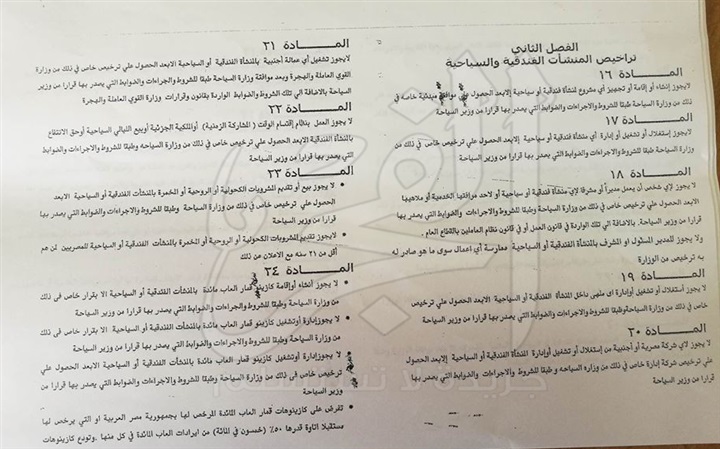 الفصل الثاني
تراخيص المنشآت الفندقية والسياحية
المـــــادة ١٦
لا يجوز إنشاء أو إقامة أو تجهيز أي مشروع لمنشأة فندقية أو سياحية إلابعد الحصول علي موافقة مبدئية خاصه في
ذلك من وزارة السياحة طبقا للشروط والاجراءات والضوابط التي يصدر بها قرارا من وزير السياحة
المـــــادة ١٧
لا يجوز إستغلال أو تشغيل أو إدارة أي منشأة فندقية أو سياحية إلابعد الحصول علي ترخيص خاص في ذلك من
وزرة السياحة طبقا للشروط والاجراءات والضوابط التي يصدر بها قرارا من وزير السياحة
المـــــادة ١٨
لا يجوز لأي شخص أن يعمل مديراً أو مشرفا لاي منشأة فندقية أو سياحية أو لاحد مرافقها الخدمية أو ملاهيها
الابعد الحصول علي ترخيص خاص في ذلك من وزارة السياحة وطبقا للشروط والاجراءات والضوابط التي يصدر بها
قرارا من وزير السياحة. بالاضافة الي تلك الواردة في قانون العمل أو في قانون نظام العاملين بالقطاع العام .
ولا يجوز للمدير المسئول او المشرف بالمنشأة الفندقية أو السياحية ممارسة أي أعمال سوى ما هو صادر له
به ترخيص من الوزارة
المـــــادة ١٩
لا يجوز أستغلال أو تشغيل أوإدارة اى ملهى داخل المنشأة الفندقية أو السياحية الابعد الحصول علي ترخيص
خاص في ذلك من وزارة السياحةوطبقا للشروط والاجراءات والضوابط التي يصدر بها قرارا من وزير السياحة
المـــــادة ٢٠
لا يجوز لاي شركة مصرية أو أجنبية من إستغلال أو تشغيل أوإدارة المنشأة الفندقية أو السياحية إلابعد الحصول
علي ترخيص شركة إدارة خاص في ذلك من وزاره السياحه و طبقا للشروط والاجراءات والضوابط التي يصدر بها
قرارا من وزير السياحة
المـــــادة ٢١
لايجوز تشغيل أي عمالة أجنبية بالمنشأة الفندقية أو السياحية الابعد الحصول علي ترخيص خاص في ذلك من وزارة
القوي العاملة والهجرة وبعد موافقة وزارة السياحة طبقا للشروط والاجراءات والضوابط التي يصدر بها قرارا من وزير
السياحة بالاضافة الي تلك الشروط والضوابط الواردة بقانون وقرارات وزارة القوي العاملة والهجرة
المـــــادة ٢٢
لا يجوز العمل بنظام إقتسام الوقت ( المشاركة الزمنية) أوالملكية الجزئية أوبيع الليالي السياحية أوحق الانتفاع
بالمنشأة الفندقية الابعد الحصول علي ترخيص خاص في ذلك من وزارة السياحه وطبقا للشروط والاجراءات والضوابط
التي يصدر بها قرارا من وزير السياحة
المـــــادة ٢٣
• لا يجوز بيع أو تقديم المشروبات الكحولية أو الروحية أو المخمرة بالمنشآت الفندقية أو السياحية الابعد
الحصول علي ترخيص خاص في ذلك من وزارة السياحة وطبقا للشروط والاجراءات والضوابط التي يصدر بها
قرارا من وزير السياحة
• لايجوز تقديم المشروبات الكحولية أو الروحية أو المخمرة بالمنشآت الفندقية أو السياحية للمصريين لمن هم
أقل من ٢١ سنه مع الاعلان عن ذلك
المـــــادة ٢٤
• لا يجوز أنشاء أوإقامة كازينو قمار العاب مائدة بالمنشآت الفندقية أو السياحية الا بقرار خاص فى ذلك
من وزارة السياحة وطبقا للشروط والاجراءات والضوابط التي يصدر بها قرارا من وزير السياحة
• لا يجوزإدارة أوتشغيل كازينو قمار العاب مائدة بالمنشآت الفندقية أو السياحية الا بقرار خاص فى ذلك
من وزارة السياحة وطبقا للشروط والاجراءات والضوابط التي يصدر بها قرارا من وزير السياحة
• لا يجوزإدارة أوتشغيل كازينو قمار العاب مائدة بالمنشآت الفندقية أو السياحية إلا بعد الحصول علي
ترخيص خاص فى ذلك من وزارة السياحة وطبقا للشروط والاجراءات والضوابط التي يصدر بها قرارا من
وزير السياحة
• تفرض على كازينوهات قمار العاب المائدة المرخص لها بجمهورية مصر العربية او التي يرخص لها
مستقبلا اتاوة قدرها ٥٠٪ (خمسون في المائة) من ايرادات العاب المائدة في كل منها .وتودع كازينوهات